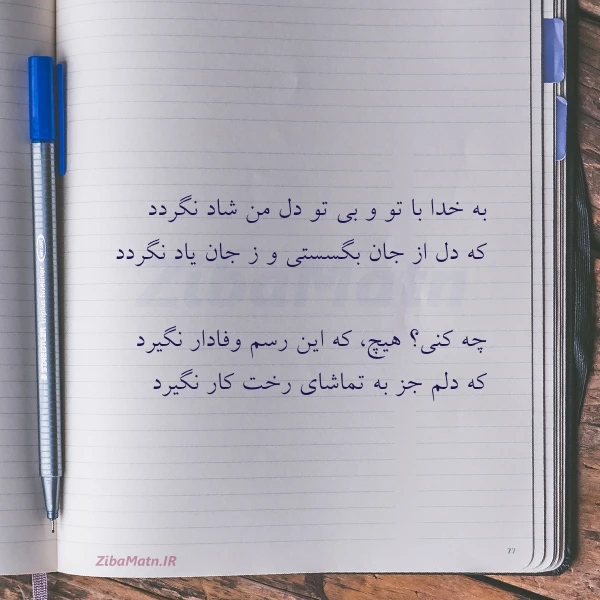 به خدا با تو و بی تو دل من شاد نگردد
که دل از جان بگسستی و ز جان یاد نگردد
چه کنی؟ هیچ، که این رسم وفادار نگیرد
که دلم جز به تماشای رخت کار نگیرد
ZibaMatn.IR